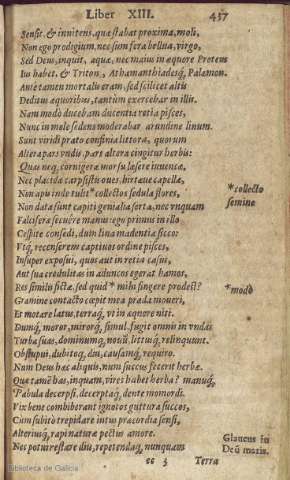 Liber XIII. 437
Sensit, & innitens, quæ stabat proxima, moli,
Non ego prodigium, nec sum fera bellua, virgo,
Sed Deus, inquit, aquæ, nec maius in æquore Proteus
Ius habet, & Triton, Athamanthiadesq́; Palæmon.
Ante tamen mortalis eram, sed scilicet altis
Deditus æquoribus, tantum exercebar in illis.
Nam modò ducebam ducentia retia pisces,
Nunc in mole sedens moderabar arundine linum.
Sunt viridi prato confinia littora, quorum
Altera pars vndis, pars altera cingitur herbis:
Quas neq; cornigeræ morsu læsere iuuencæ,
Nec placidæ carpsistis oues, hirtæue capellæ,
Non apis inde tulit * collectos sedula flores, *collecto
Non data sunt capiti genialia serta, nec vnquam semine
Falciferæ secuêre manus: ego primus in illo
Cespite consedi, dum lina madentia sicco:
Vtq́; recenserem captiuos ordine pisces,
Insuper exposui, quos aut in retia casus,
Aut sua credulitas in aduncos egerat hamos,
Res similis fictæ, sed quid * mihi fingere prodest? *modò
Gramine contacto cœpit mea præda moueri,
Et motare latus, terraq́; vt in æquore niti.
Dumq́; moror, mirorq́;, simul fugit omnis in vndas
Turba suas, dominumq́; nouũ, littusq́; relinquunt.
Obstupui, dubitoq́; diu, causamq́; requiro.
Num Deus hæc aliquis, num succus fecerit herbæ.
Quæ tamẽ has, inquam, vires habet herba? manuq́;
Pabula decerpsi, decerptaq́; dente momordi.
Vix bene combiberant ignotos guttura succos,
Cum subitò trepidare intus præcordia sensi,
Alteriusq́; rapi naturæ pectus amore.
Nec potui restare diu, repetendaq́; nunquam Glaucus in
Deũ maris.
ee 3 Terra
Biblioteca de Galicia